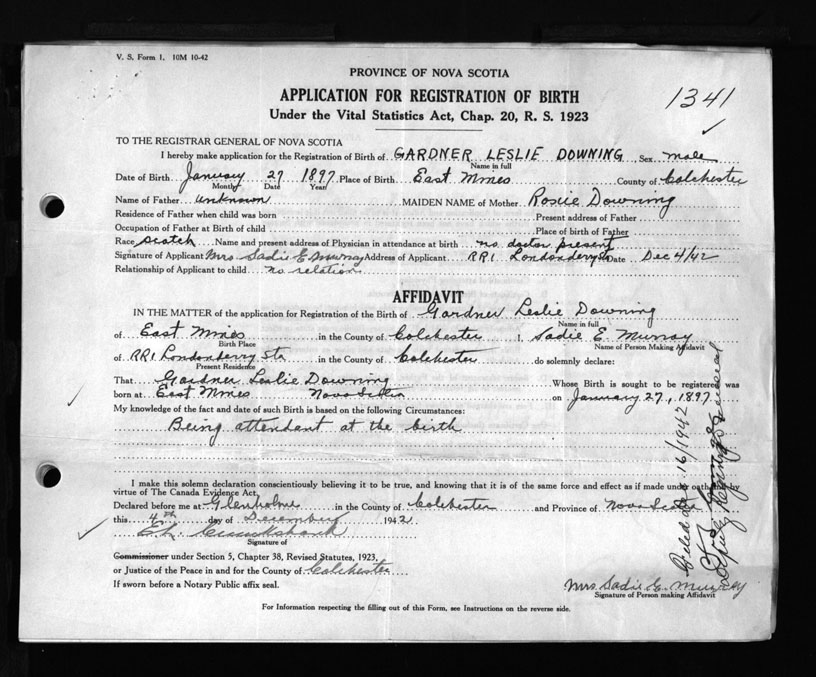 V. S. Form 1. 10M 10-42
PROVINCE OF NOVA SCOTIA
APPLICATION FOR REGISTRATION OF BIRTH
Under the Vital Statistics Act, Chap. 20, R. S. 1923
1341
TO THE REGISTRAR GENERAL OF NOVA SCOTIA
I hereby make application for the Registration of Birth of GARDNER LESLIE DOWNING, Sex male
Name in full
Date of Birth January 27 1897 Place of Birth East Mines County of Colchester
Month Date Year
Name of Father unknown MAIDEN NAME of Mother Rosie Downing
Residence of Father when child was born Present address of Father
Occupation of Father at Birth of child Place of birth of Father
Race scotch Name and present address of Physician in attendance at birth no doctor present
Signature of Applicant Mrs Sadie E Murray Address of Applicant RR1 Londonderry Date Dec 4/42
Relationship of Applicant to child no relation
AFFIDAVIT
IN THE MATTER of the application for Registration of the Birth of Gardner Leslie Downing
Name in full
of East Mines in the County of Colchester I, Sadie E. Murray
Birth Place Name of Person Making Affidavit
of RR1 Londonderry Sta in the County of Colchester do solemnly declare:
Present Residence
That Gardner Leslie Downing Whose Birth is sought to be registered was
born at East Mines Nova Scotia on January 27, 1897
My knowledge of the fact and date of such Birth is based on the following Circumstances:
Being attendant at the birth
I make this solemn declaration conscientiously believing it to be true, and knowing that it is of the same force and effect as if made under oath by
virtue of The Canada Evidence Act.
Declared before me at Glenholme in the County of Colchester and Province of Nova Scotia
this 4th day of December 1942
Signature of
Commissioner under Section 5, Chapter 38, Revised Statutes, 1923,
or Justice of the Peace in and for the County of Colchester
If sworn before a Notary Public affix seal.
Mrs. Sadie E. Murray
Signature of Person making Affidavit
For Information respecting the filling out of this Form, see Instructions on the reverse side.
Filed Dec 16/1942
Deputy Registrar General